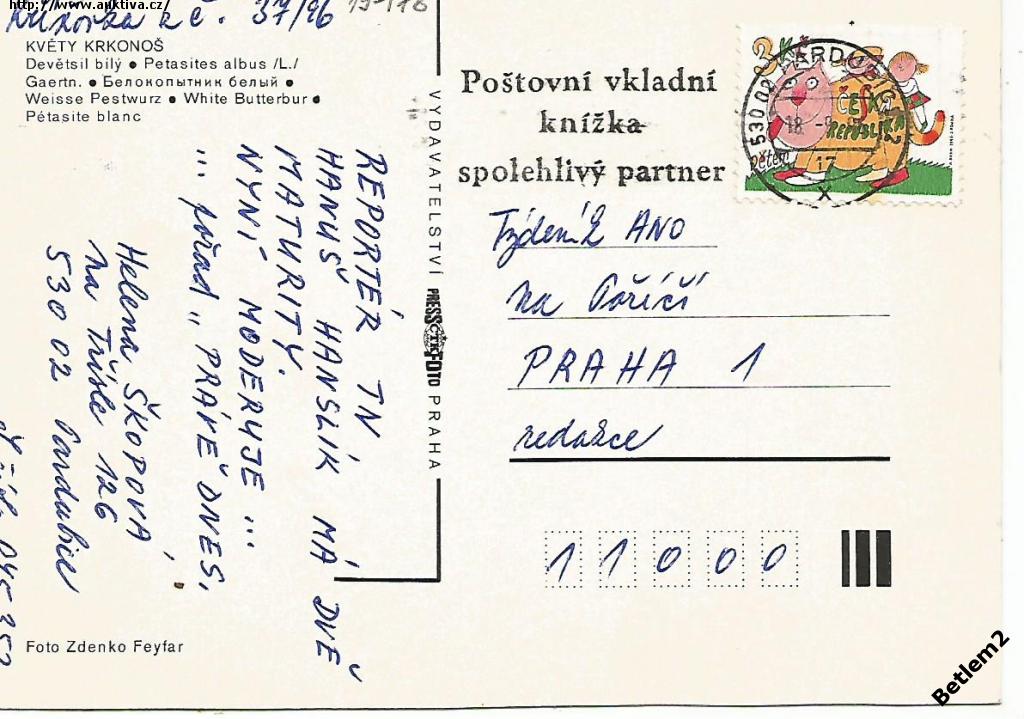 http://www.auktiva.cz/
Křížovka z č. 37/96
KVĚTY KRKONOŠ
Devětsil bílý ● Petasites albus /L./
Gaertn. ● Белокопытник белый ●
Weisse Pestwurz ● White Butterbur ●
Pétasite blanc
REPORTÉR TN
HANUŠ HANSLÍK MÁ DVĚ
MATURITY.
NYNÍ MODERUJE ...
... pořad „ PRÁVĚ DNES.
Helena ŠKOPOVÁ
Na Třísle 126
530 02 Pardubice
Foto Zdenko Feyfar
VYDAVATELSTVÍ PRESSFOTO PRAHA
ČTK
Poštovní vkladní
knížka
spolehlivý partner
3 Kč
ČESKÁ
REPUBLIKA
dětem
530 02 PARDU
18
17
x
Týdeník ANO
Na Poříčí
PRAHA 1
redakce
11000
Betlem2